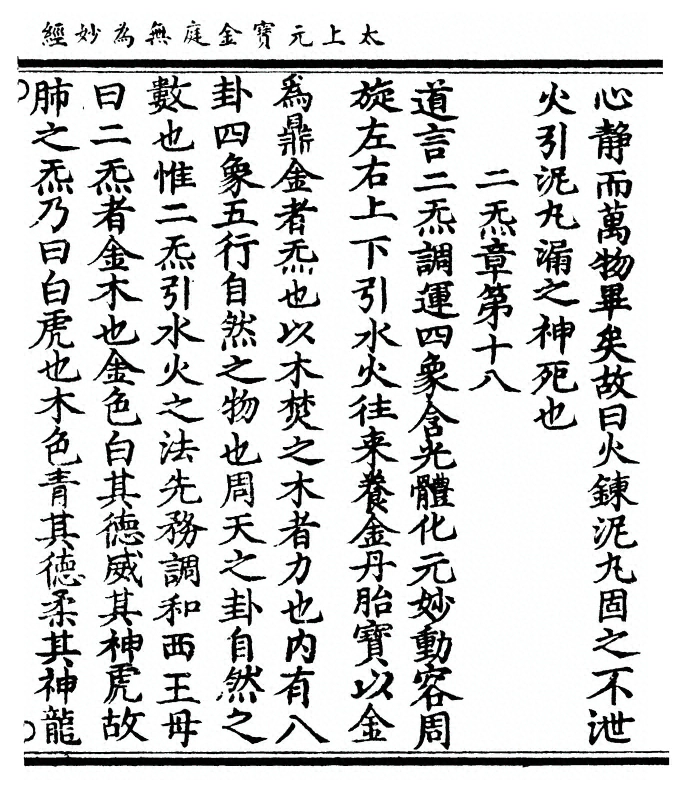 太上元寶金庭無為妙經
心靜而萬物畢矣故曰火鍊泥丸固之不泄
火引泥丸漏之神死也
二炁章第十八
道言二炁調運四象含光體化元妙動容周
旋左右上下引水火往来養金丹胎寶以金
為鼎金者炁也以木焚之木者力也内有八
卦四象五行自然之物也周天之卦自然之
數也惟二炁引水火之法先務調和西王母
曰二炁者金木也金色白其德威其神虎故
肺之炁乃曰白虎也木色青其德柔其神龍